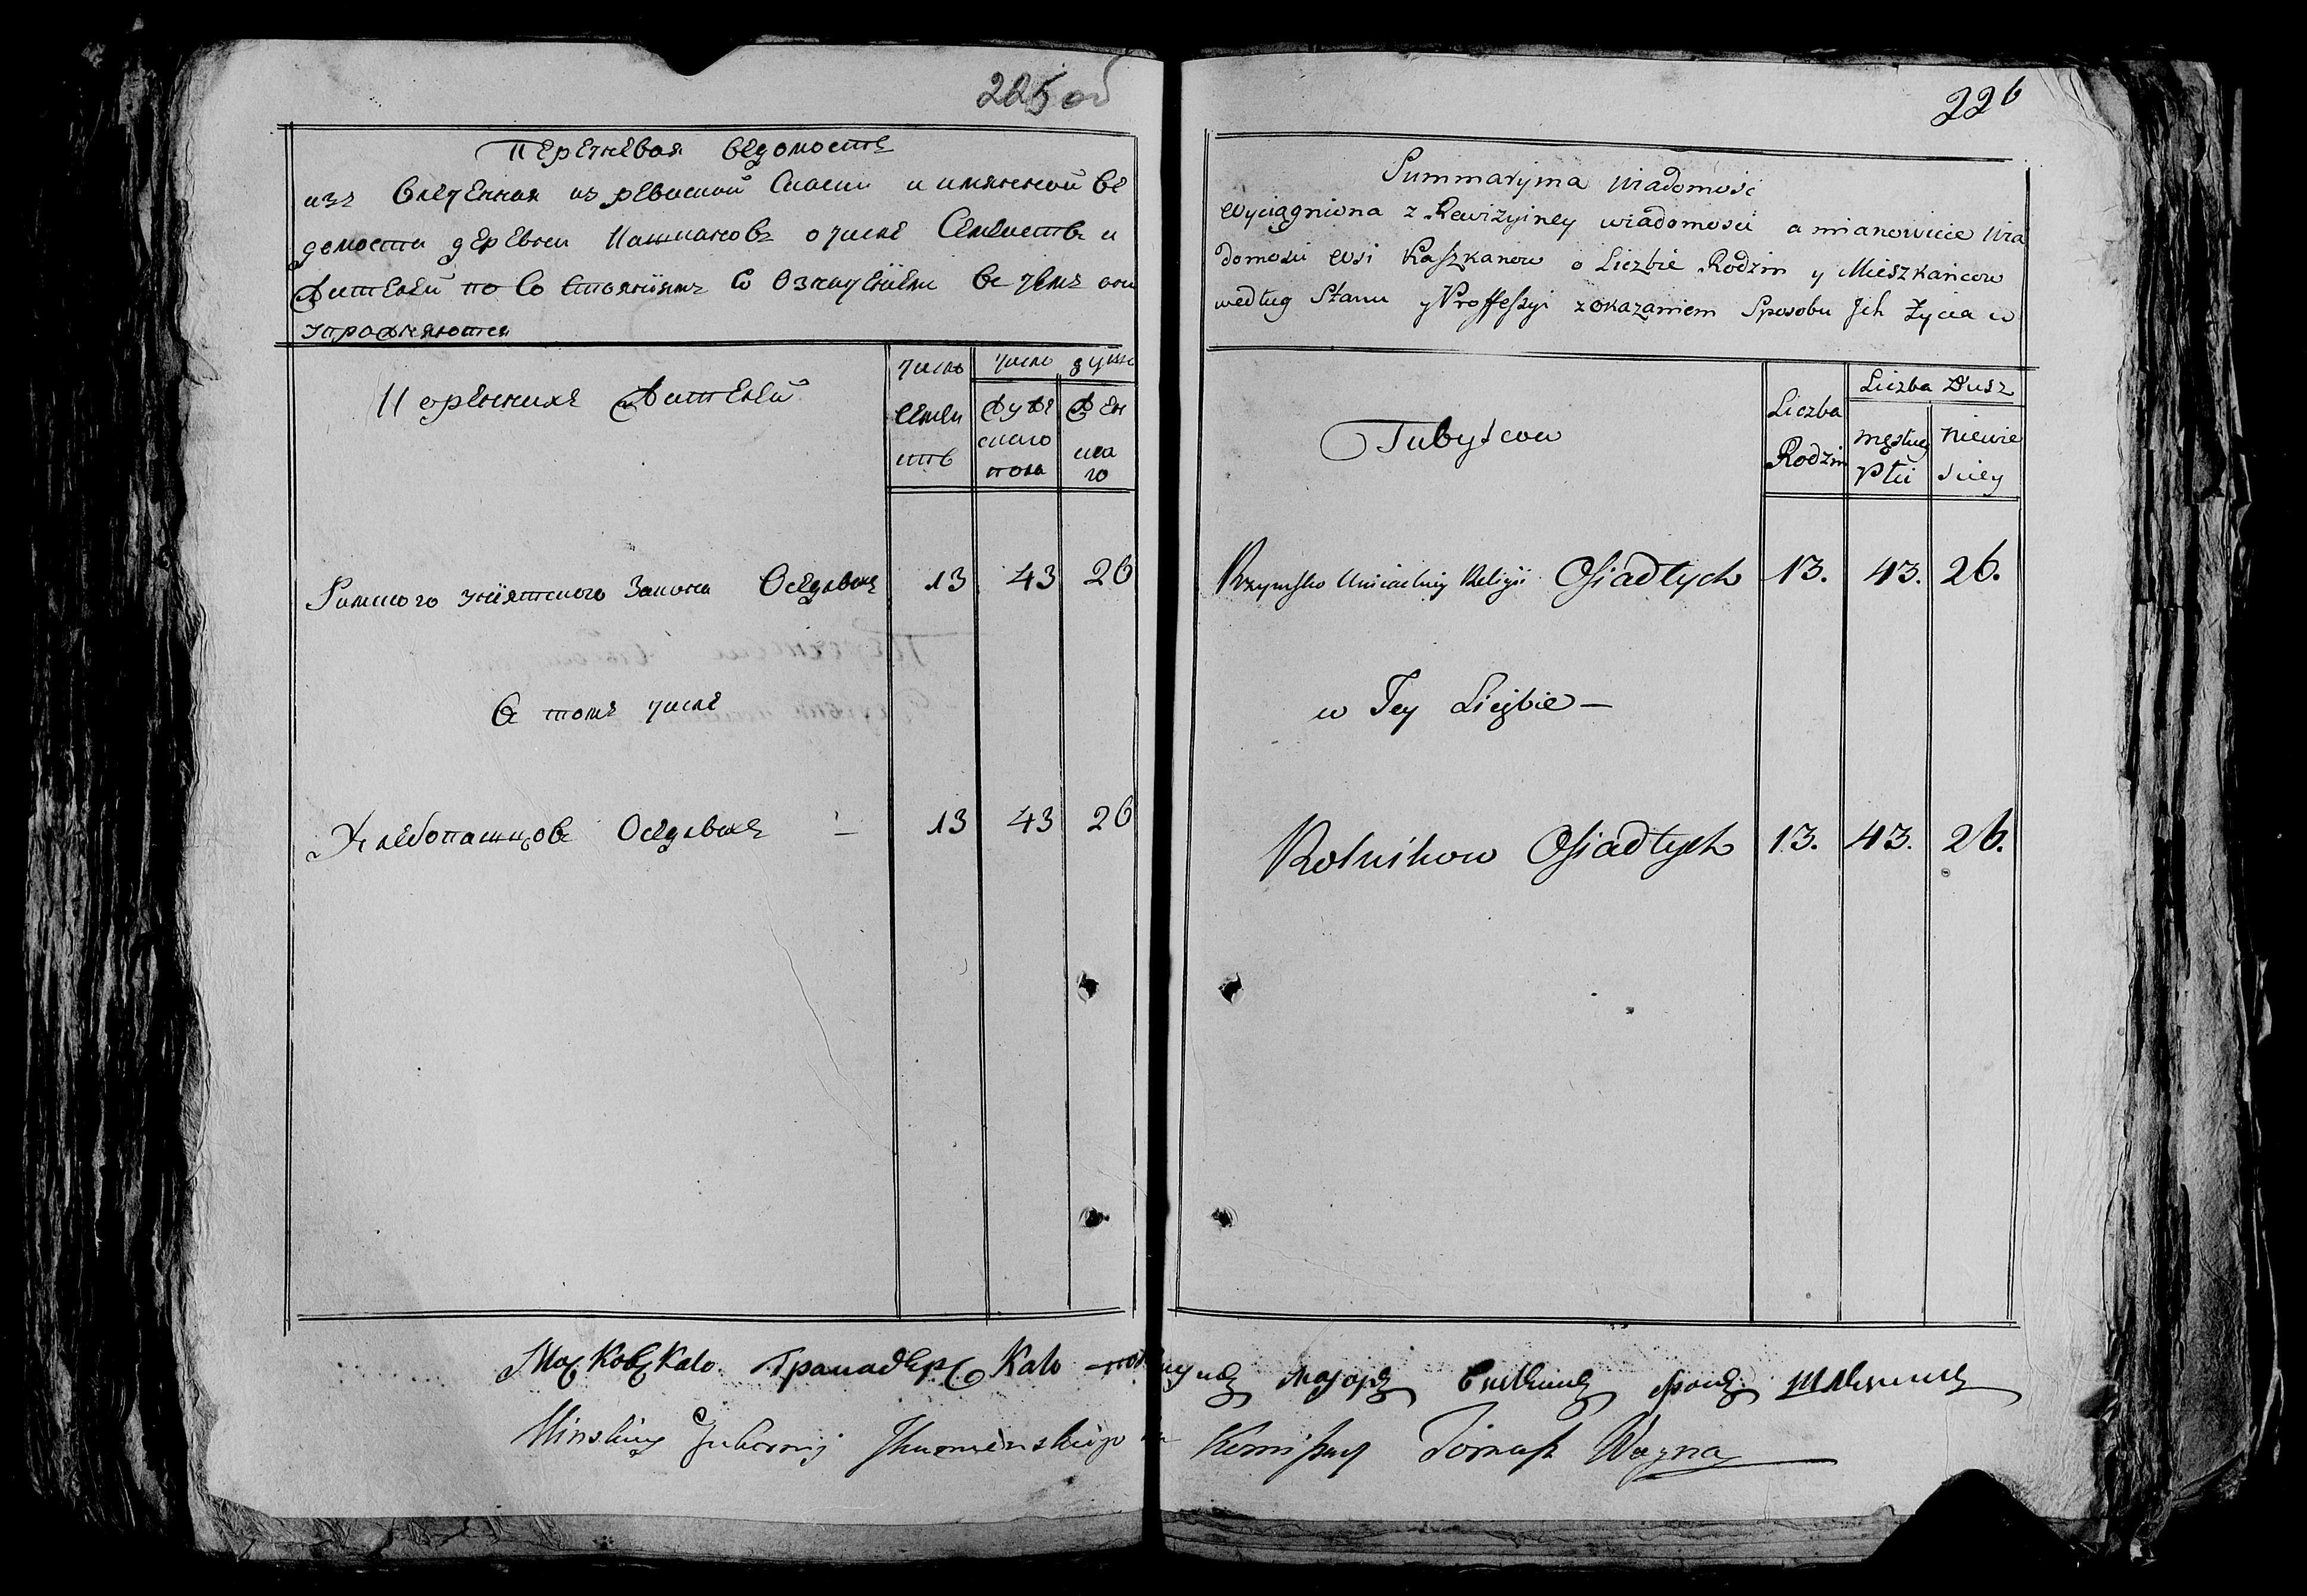 225 об
Перечневая ведомость
извлеченная из ревиской Скаски и имянной ве
домости деревни Кашканов о числе Семейств и
Жителей по Состояниям со Означением в чем они
упражняются
Коренных Жителей
число
Семей
ств
число душ
Муже
ского
пола
Жен
ска
го
Римского униятского Закона Оседлых 13 43 26
В том числе
Хлебопашцов Оседлых — 13 43 26
226
Summaryina Wiadomość
Wyciągniona z Rewizyiney wiadomości a mianowicie Wia
domości Wsi Kaszkanow o Liczbie Rodzin y Mieszkańcow
według Stanu y Proffeszyi z okazaniem Sposobu Jch Życia w
Tubylcow
Liczba
Rodzin
Liczba Dusz
męskiey
Płci
niewie
sciey
Rzymsko Uniackiey Religii Osiadłych 13. 43. 26.
w Tey Liczbie —
Rolnikow Osiadłych 13. 43. 26.
Московскаго Гранадерскаго маиоръ
Minskiey Gubernij Jhumenskiego Komissarz Tomasz Wayna